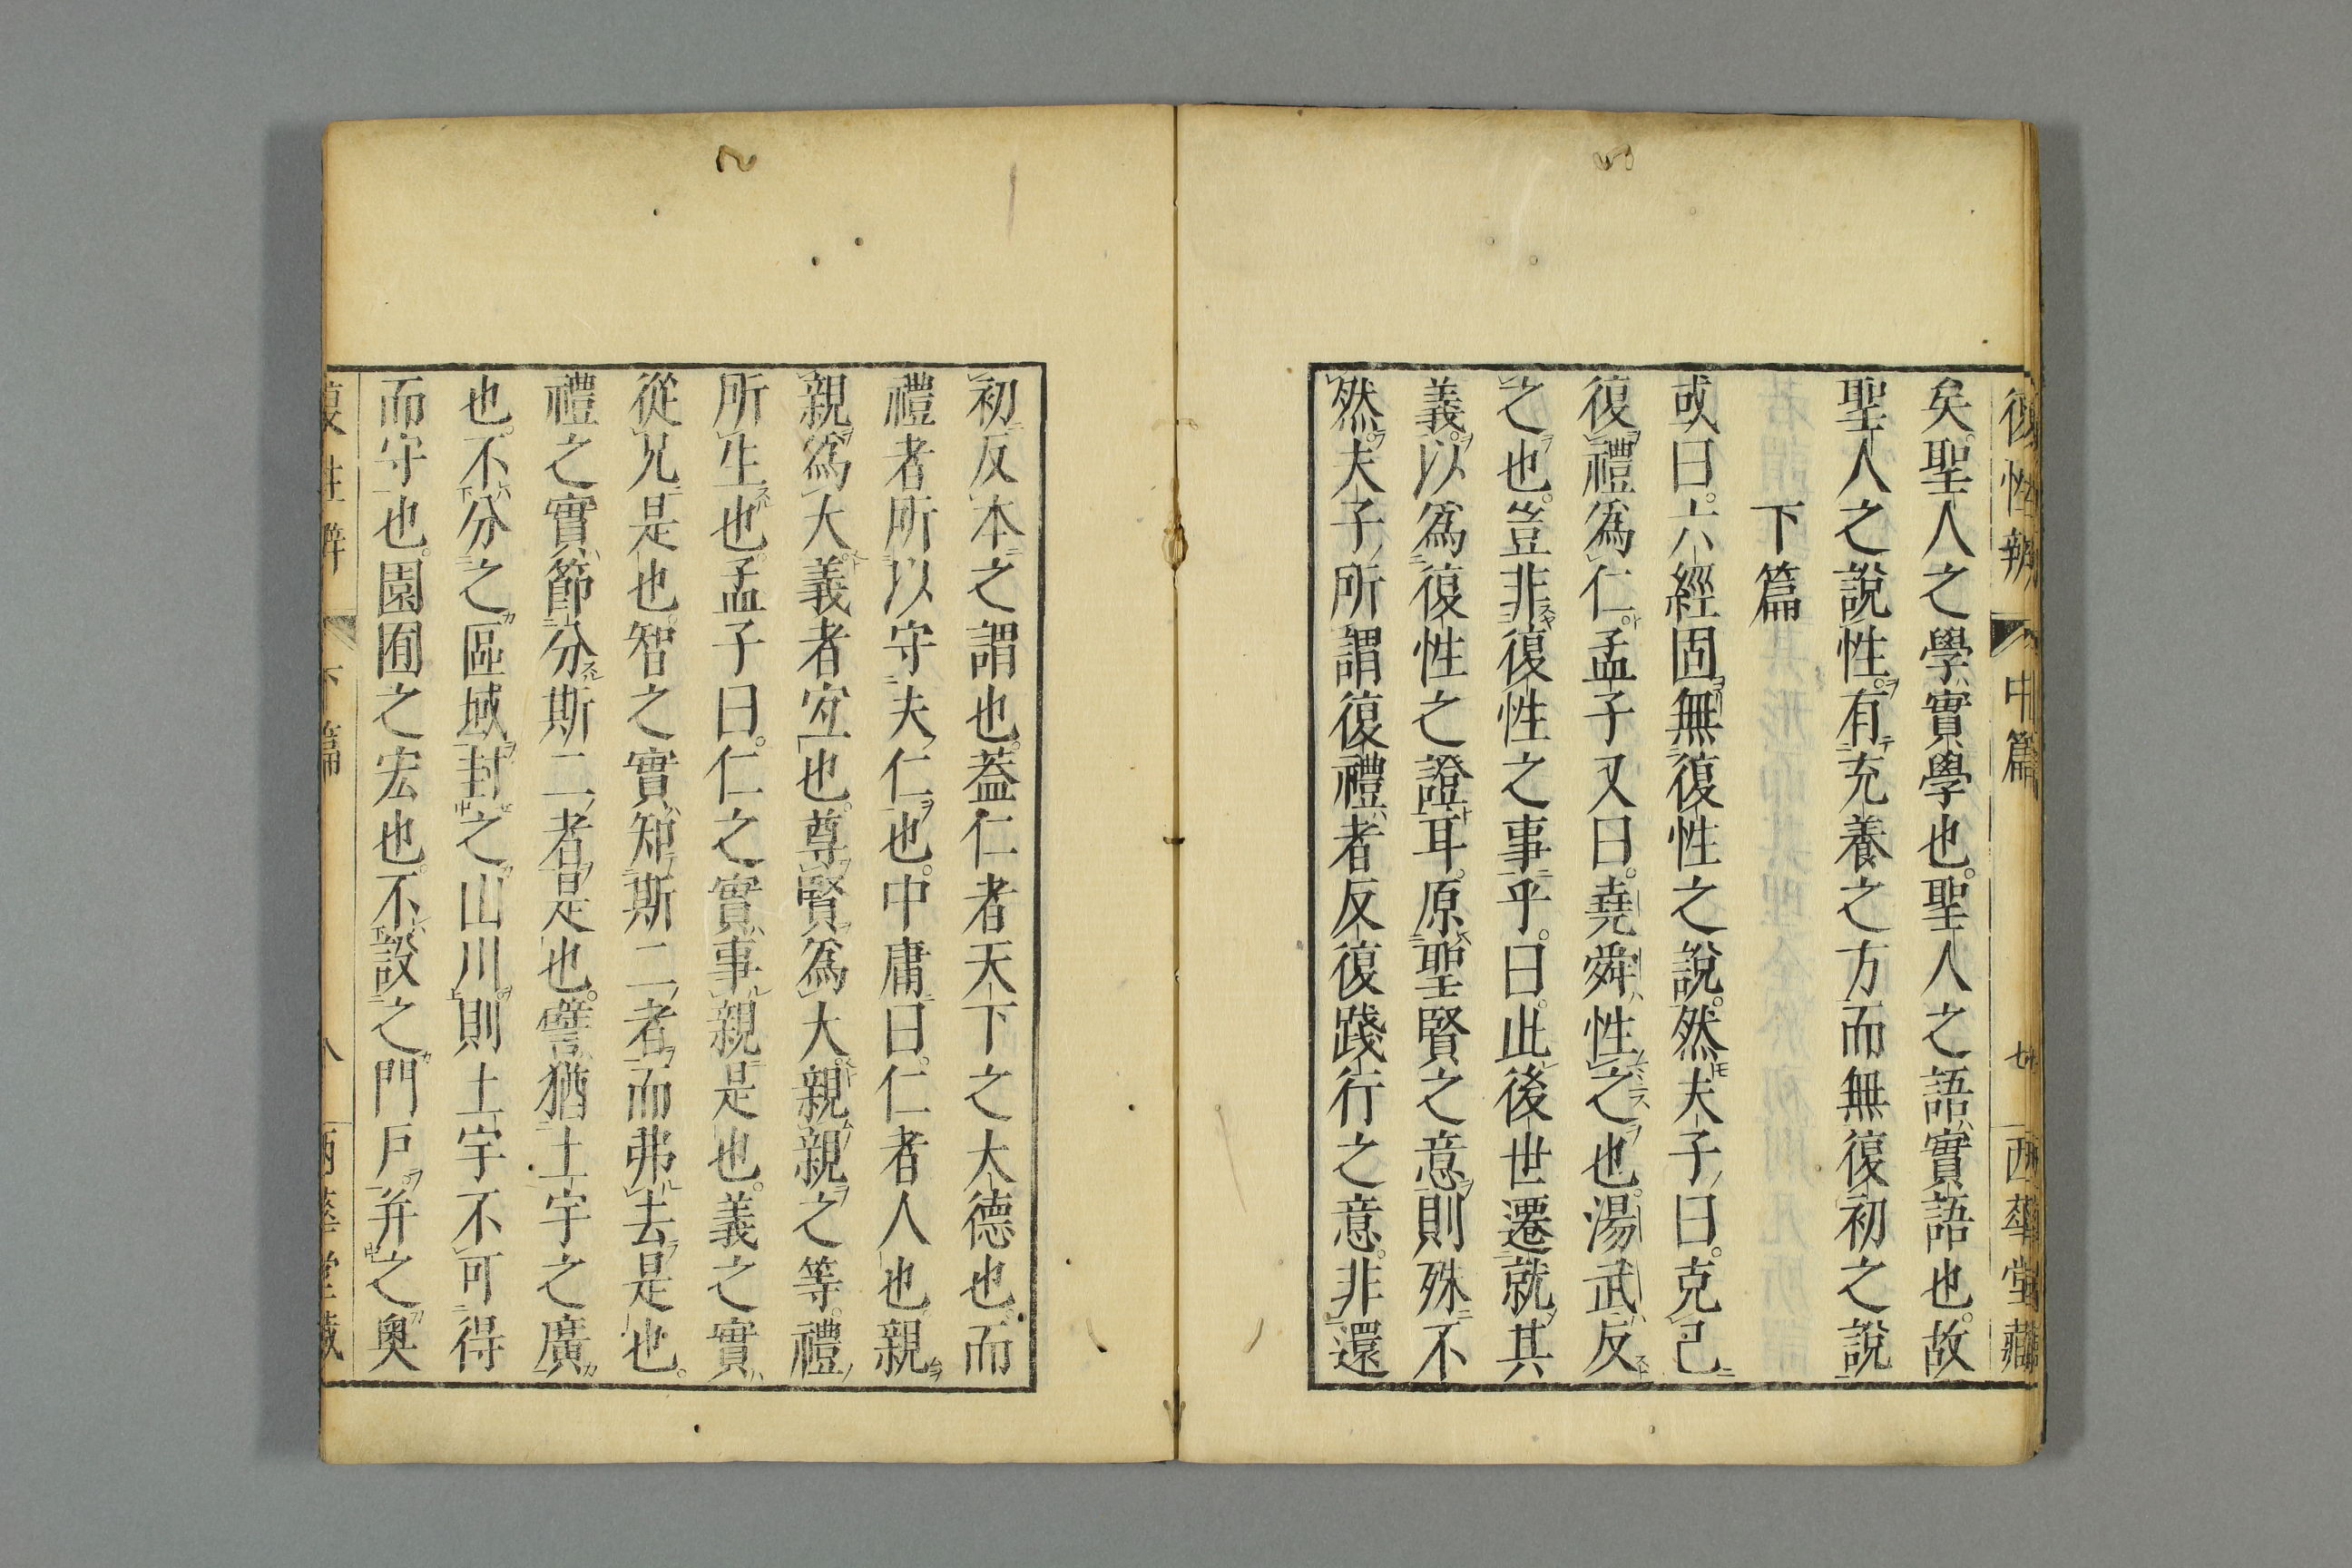 復性辨 中篇 七 西華堂藏
矣。聖人之學、實學也。聖人之語、實語也。故
聖人之說性。有充養之方而無復初之說
下篇
或曰。六經固無復性之說。然夫子曰。克己
復禮爲仁。孟子又曰。堯舜性之也。湯武反
之也。豈非復性之事乎。曰。此後世遷就其
義。以爲復性之證耳。原聖賢之意則殊不
然。夫子所謂復禮者反復踐行之意。非還
初反本之謂也。葢仁者天下之大德也。而
禮者所以守夫仁也。中庸曰。仁者人也。親
親爲大。義者宐也。尊賢爲大。親親之等。禮
所生也。孟子曰。仁之實事親是也。義之實
從兄是也。智之實知斯二者而弗去是也。
禮之實節分斯二者是也。譬猶土宇之廣
也。不分之區域封之山川。則土宇不可得
而守也。園囿之宏也。不設之門戶。并之奧
復性辨 下篇 八 西華堂藏